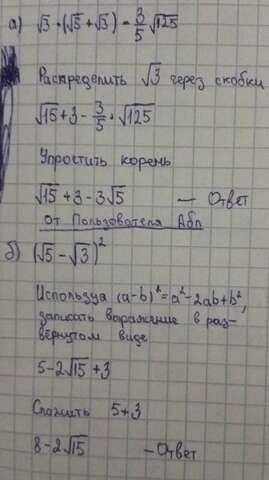 а) √3 · (√5 + √3) - 3/5 √125
Распределить √3 через скобки
√15 + 3 - 3/5 · √125
Упростить корень
√15 + 3 - 3√5 — Ответ
От Пользователя Абп
б) (√5 - √3)²
Используя (a-b)² = a² - 2ab + b²,
записать выражение в раз-
вёрнутом виде
5 - 2√15 + 3
Сложить 5+3
8 - 2√15 - Ответ